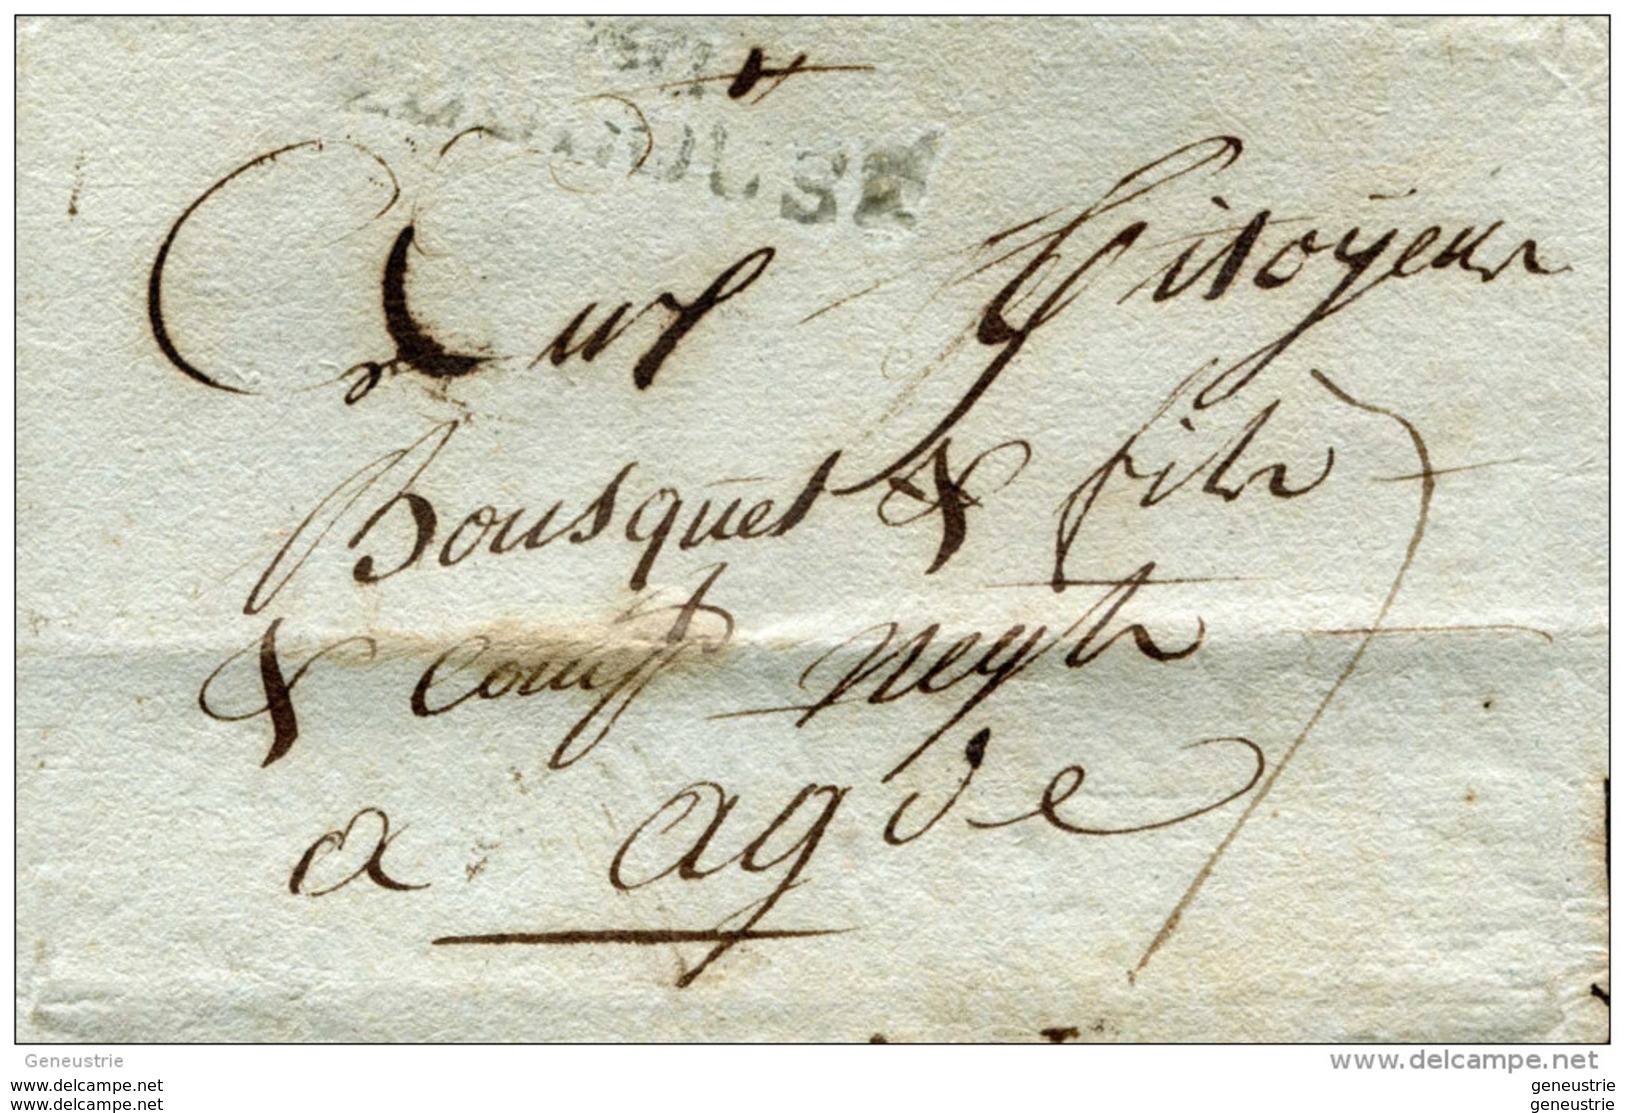 TOULOUSE
Aux Citoyens
Bousquet & fils
& Comp.
a agde
Geneustrie
www.delcampe.net
www.delcampe.net
www.delcampe.net
geneustrie
geneustrie